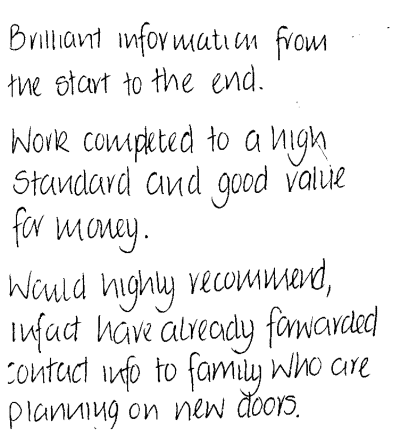 Brilliant information from
the start to the end.
Work completed to a high
standard and good value
for money.
Would highly recommend,
infact have already forwarded
contact info to family who are
planning on new doors.